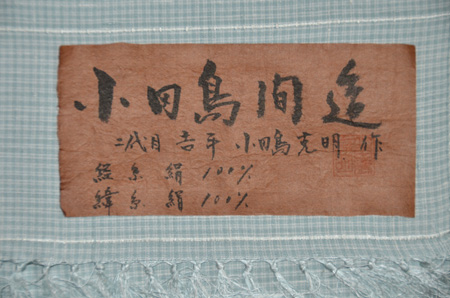 小田島間道
二代目 吉平 小田島克明 作
経糸 絹 100%
緯糸 絹 100%